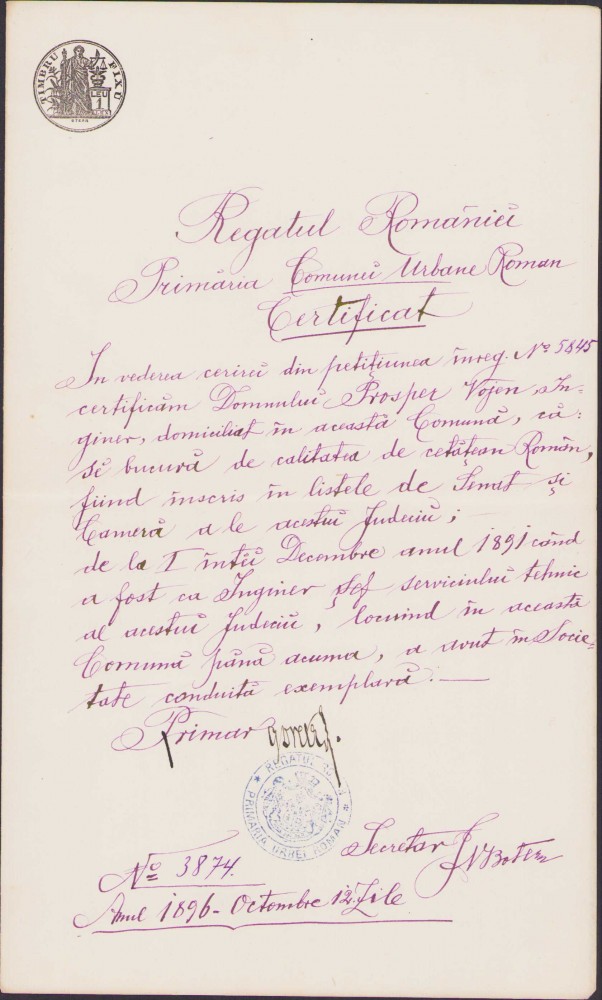 TIMBRU FIXU
LEU
1
Regatul Românieĭ
Primăria Comuneĭ Urbane Roman
Certificat
In vederea cerireĭ din petițiunea înreg. Nº 5845
certificăm Domnului Prosper Vojen, In=
giner, domiciliat în această Comună, că:
se bucură de calitatea de cetățean Român,
fiind înscris în listele de Senat și
Cameră a le acestuĭ Judeciŭ;
de la I întĭĭ Decembre anul 1891 când
a fost ca Inginer șef serviciuluĭ tehnic
al acestuĭ Judeciŭ, locuind în această
Comună până acuma, a avut în Socie=
tate conduită exemplară. —
Primar
REGATUL
PRIMARIA URBEI ROMAN
Secretar
Nº 3874.
Anul 1896 - Octombre 12 Zile